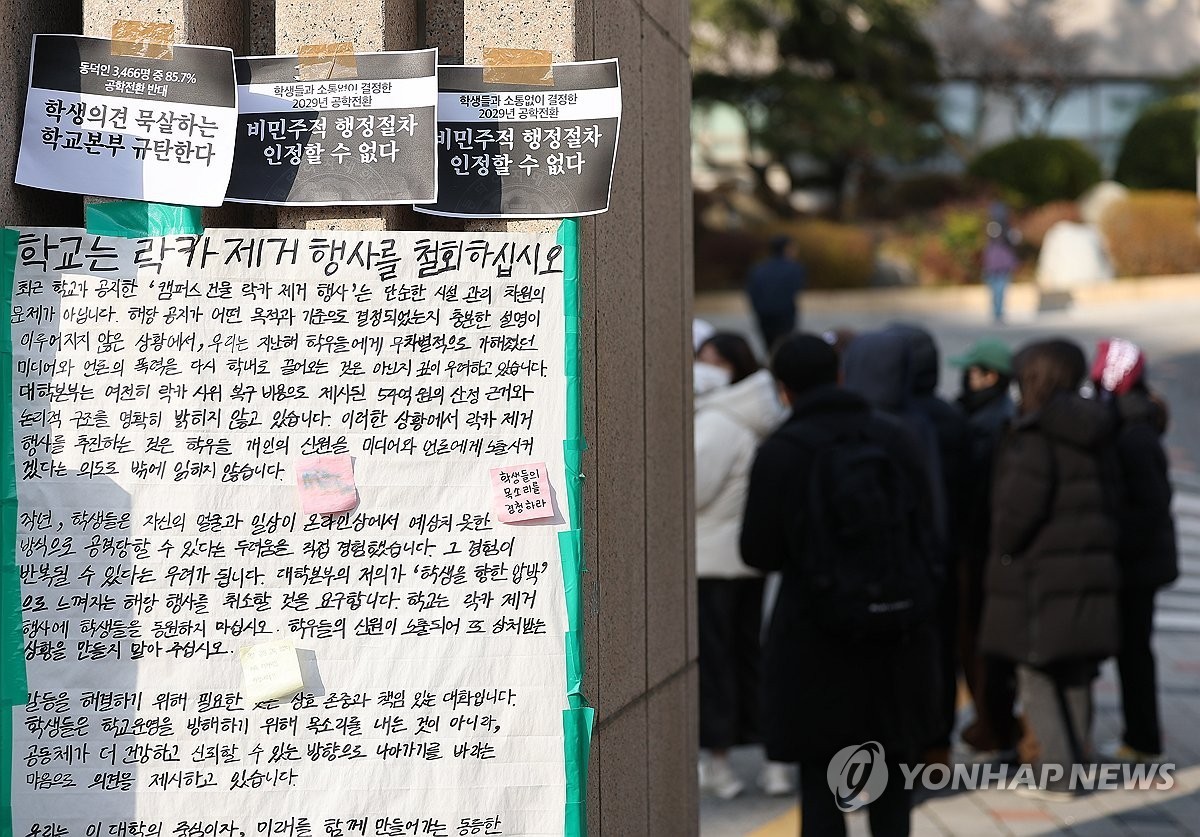 동덕인 3,466명 중 85.7%
공학전환 반대
학생의견 묵살하는
학교본부 규탄한다
학생들과 소통없이 결정한
2029년 공학전환
비민주적 행정절차
인정할 수 없다
학생들과 소통없이 결정한
2029년 공학전환
비민주적 행정절차
인정할 수 없다
학교는 락카 제거 행사를 철회하십시오
최근 학교가 공지한 '캠퍼스 건물 락카 제거 행사'는 단순한 시설 관리 차원의
문제가 아닙니다. 해당 공지가 어떤 목적과 기준으로 결정되었는지 충분한 설명이
이루어지지 않은 상황에서, 우리는 지난해 학우들에게 무차별적으로 가해졌던
미디어와 언론의 폭력을 다시 학내로 끌어오는 것은 아닌지 깊이 우려하고 있습니다.
대학본부는 여전히 락카 시위 복구 비용으로 제시된 54억 원의 산정 근거와
논리적 구조를 명확히 밝히지 않고 있습니다. 이러한 상황에서 락카 제거
행사를 추진하는 것은 학우들 개인의 신원을 미디어와 언론에게 노출시키
겠다는 의도로 밖에 읽히지 않습니다.
학생들의
목소리를
경청하라
작년, 학생들은 자신의 얼굴과 일상이 온라인상에서 예상치 못한
방식으로 공격당할 수 있다는 두려움을 직접 경험했습니다. 그 경험이
반복될 수 있다는 우려가 큽니다. 대학본부의 저의가 "학생을 향한 압박"
으로 느껴지는 해당 행사를 취소할 것을 요구합니다. 학교는 락카 제거
행사에 학생들을 동원하지 마십시오. 학우들의 신원이 노출되어 또 상처받는
상황을 만들지 말아 주십시오.
갈등을 해결하기 위해 필요한 것은 상호 존중과 책임 있는 대화입니다.
학생들은 학교운영을 방해하기 위해 목소리를 내는 것이 아니라,
공동체가 더 건강하고 신뢰할 수 있는 방향으로 나아가기를 바라는
마음으로 의견을 제시하고 있습니다.
우리는 이 대학의 중심이자, 미래를 함께 만들어가는 동등한
YONHAP NEWS